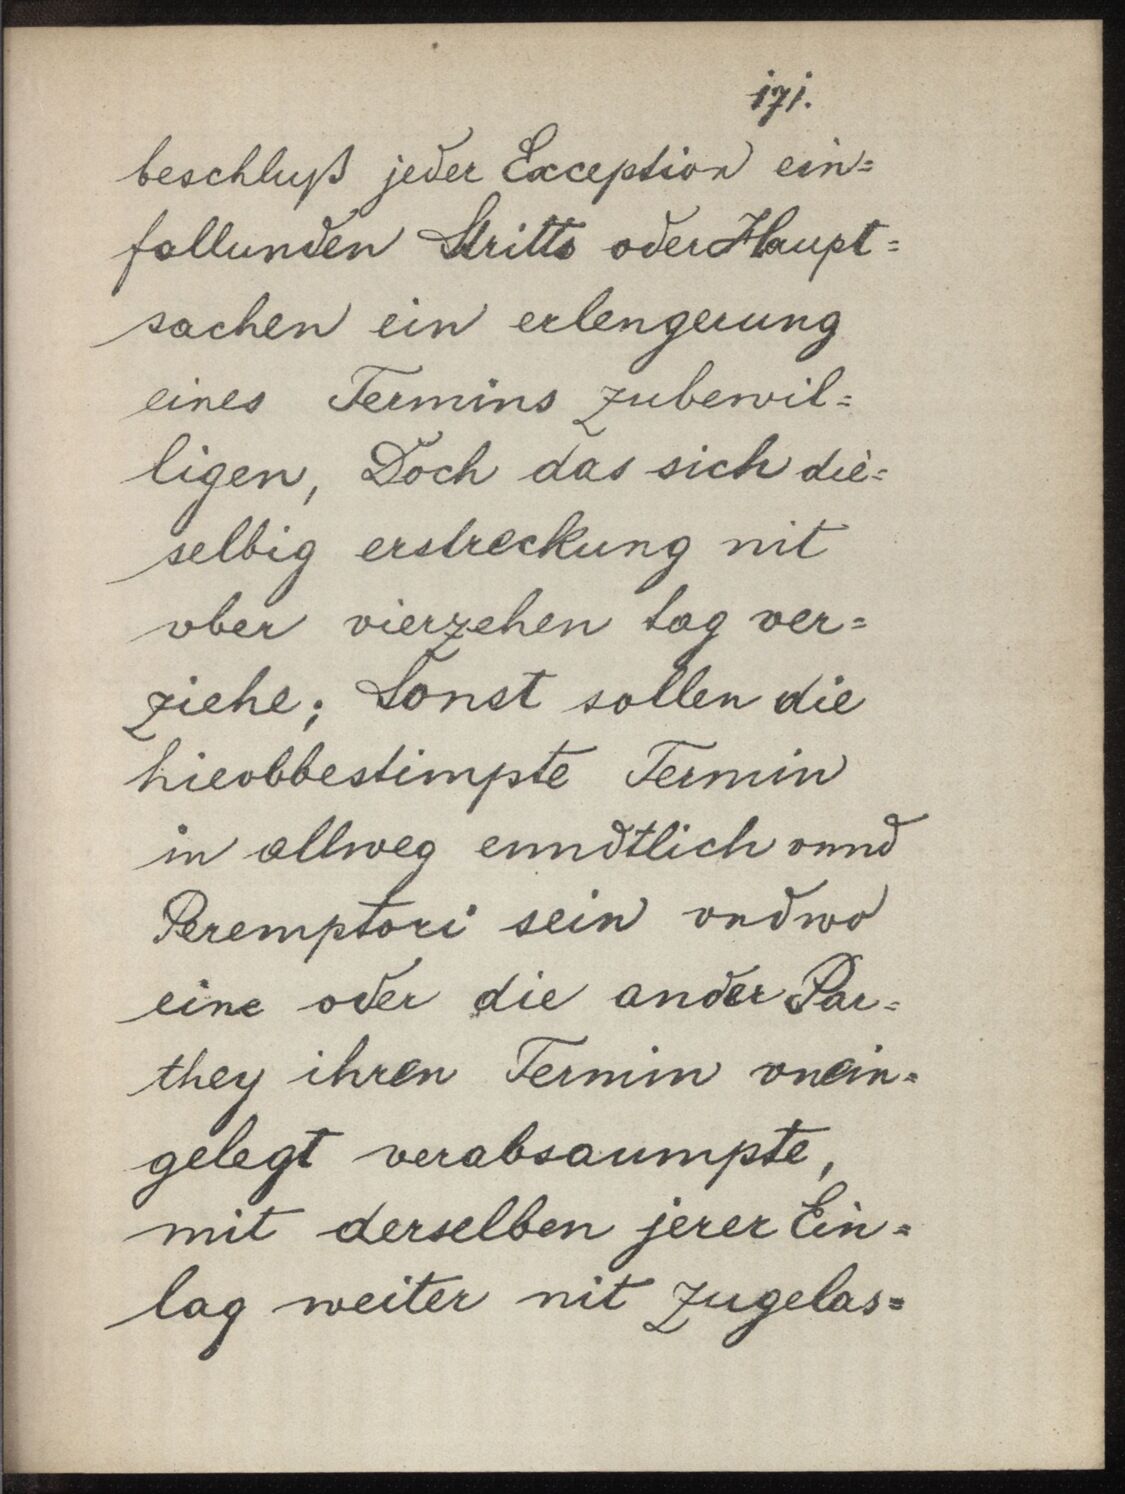 171.
beschluß jeder Exception ein=
fallunden Stritts oder Haupt=
sachen ein erlengerung
eines Termins zubewil=
ligen, Doch das sich die=
selbig erstreckung nit
vber vierzehen tag ver=
ziehe; Sonst sollen die
hieobbestimpte Termin
in allweg enndtlich vnnd
Peremptori sein vnd wo
eine oder die ander Par=
they ihren Termin vnein=
gelegt verabsaumpte,
mit derselben jerer Ein=
lag weiter nit zugelas=